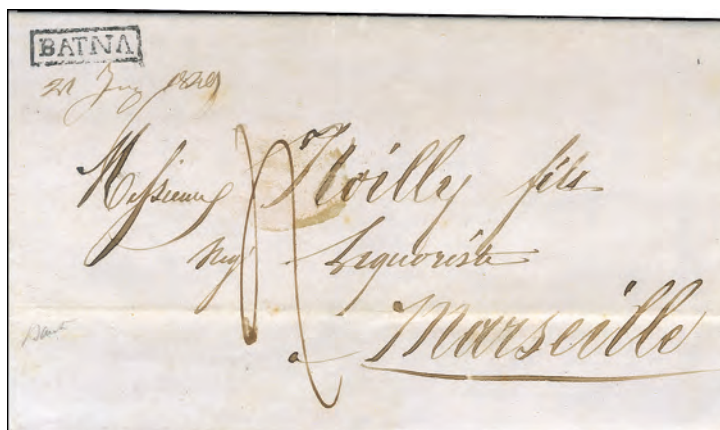 BATNA
Messieurs Noilly fils
Negt Liquoriste
Marseille